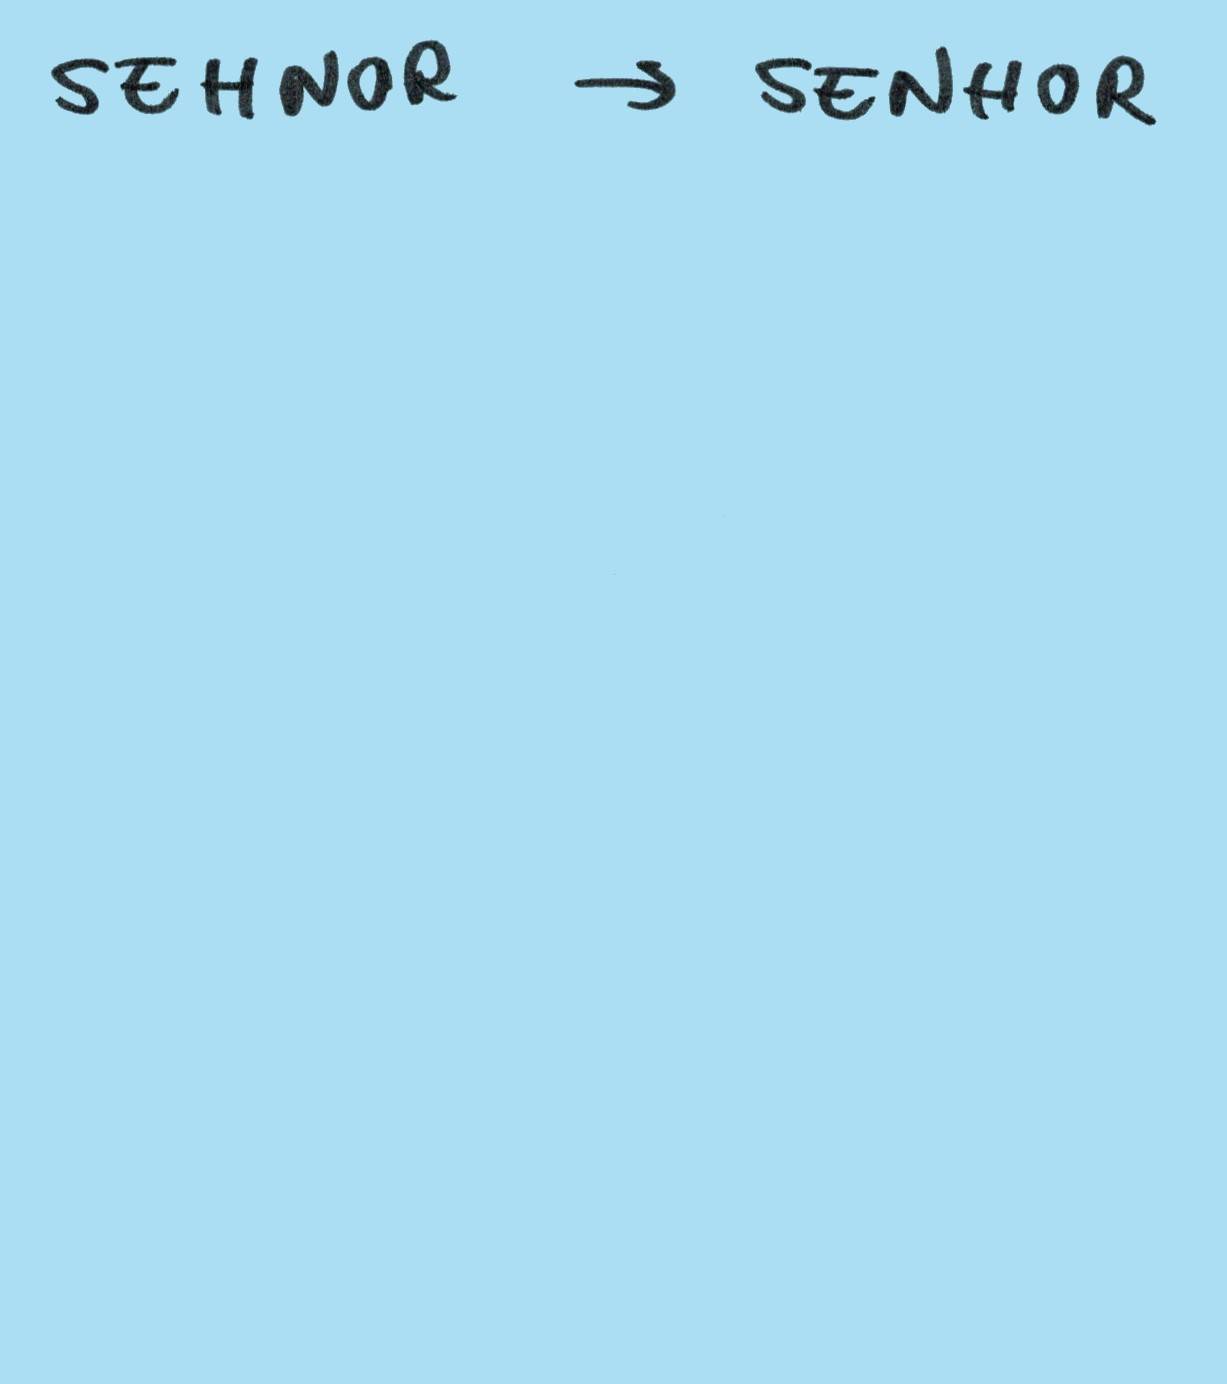 SEHNOR → SENHOR